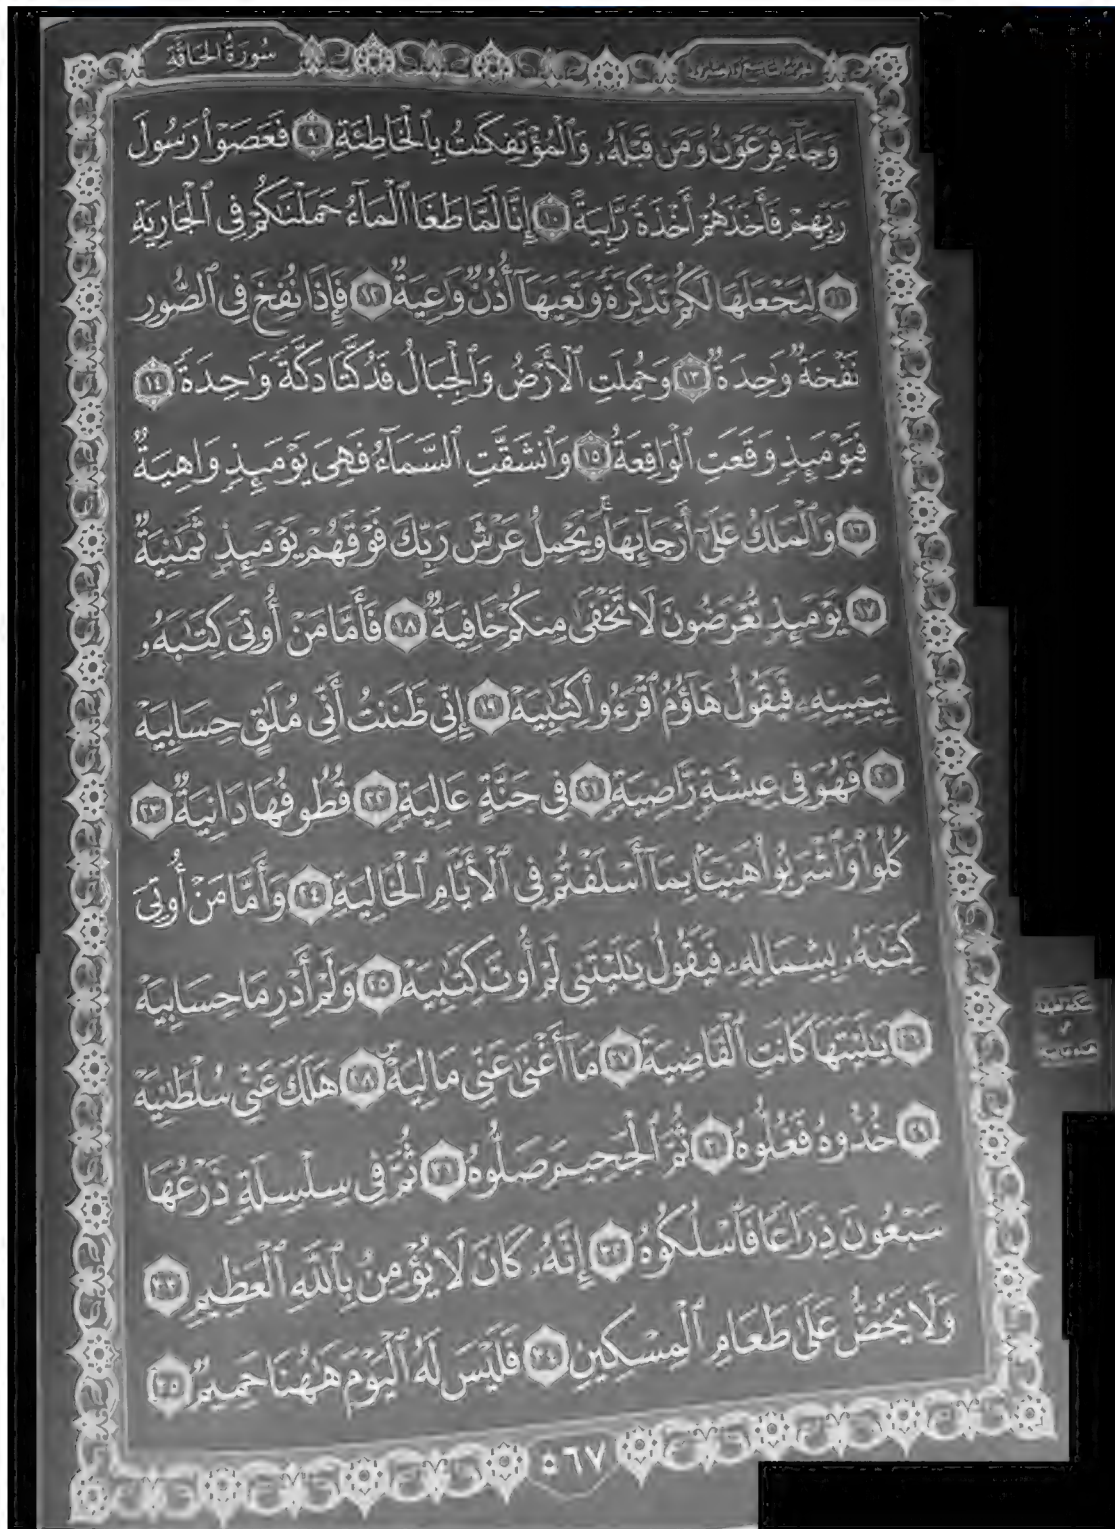 سُورَةُ الحَاقَّة
الجزء التاسع والعشرون
وَجَآءَ فِرۡعَوۡنُ وَمَن قَبۡلَهُۥ وَٱلۡمُؤۡتَفِكَٰتُ بِٱلۡخَاطِئَةِ ٩ فَعَصَوۡاْ رَسُولَ
رَبِّهِمۡ فَأَخَذَهُمۡ أَخۡذَةٗ رَّابِيَةً ١٠ إِنَّا لَمَّا طَغَا ٱلۡمَآءُ حَمَلۡنَٰكُمۡ فِي ٱلۡجَارِيَةِ
١١ لِنَجۡعَلَهَا لَكُمۡ تَذۡكِرَةٗ وَتَعِيَهَآ أُذُنٞ وَٰعِيَةٞ ١٢ فَإِذَا نُفِخَ فِي ٱلصُّورِ
نَفۡخَةٞ وَٰحِدَةٞ ١٣ وَحُمِلَتِ ٱلۡأَرۡضُ وَٱلۡجِبَالُ فَدُكَّتَا دَكَّةٗ وَٰحِدَةٗ ١٤
فَيَوۡمَئِذٖ وَقَعَتِ ٱلۡوَاقِعَةُ ١٥ وَٱنشَقَّتِ ٱلسَّمَآءُ فَهِيَ يَوۡمَئِذٖ وَاهِيَةٞ
١٦ وَٱلۡمَلَكُ عَلَىٰٓ أَرۡجَآئِهَاۚ وَيَحۡمِلُ عَرۡشَ رَبِّكَ فَوۡقَهُمۡ يَوۡمَئِذٖ ثَمَٰنِيَةٞ
١٧ يَوۡمَئِذٖ تُعۡرَضُونَ لَا تَخۡفَىٰ مِنكُمۡ خَافِيَةٞ ١٨ فَأَمَّا مَنۡ أُوتِيَ كِتَٰبَهُۥ
بِيَمِينِهِۦ فَيَقُولُ هَآؤُمُ ٱقۡرَءُواْ كِتَٰبِيَهۡ ١٩ إِنِّي ظَنَنتُ أَنِّي مُلَٰقٍ حِسَابِيَهۡ
٢٠ فَهُوَ فِي عِيشَةٖ رَّاضِيَةٖ ٢١ فِي جَنَّةٍ عَالِيَةٖ ٢٢ قُطُوفُهَا دَانِيَةٞ ٢٣
كُلُواْ وَٱشۡرَبُواْ هَنِيٓـَٔۢا بِمَآ أَسۡلَفۡتُمۡ فِي ٱلۡأَيَّامِ ٱلۡخَالِيَةِ ٢٤ وَأَمَّا مَنۡ أُوتِيَ
كِتَٰبَهُۥ بِشِمَالِهِۦ فَيَقُولُ يَٰلَيۡتَنِي لَمۡ أُوتَ كِتَٰبِيَهۡ ٢٥ وَلَمۡ أَدۡرِ مَا حِسَابِيَهۡ
٢٦ يَٰلَيۡتَهَا كَانَتِ ٱلۡقَاضِيَةَ ٢٧ مَآ أَغۡنَىٰ عَنِّي مَالِيَهۡۜ ٢٨ هَلَكَ عَنِّي سُلۡطَٰنِيَهۡ
٢٩ خُذُوهُ فَغُلُّوهُ ٣٠ ثُمَّ ٱلۡجَحِيمَ صَلُّوهُ ٣١ ثُمَّ فِي سِلۡسِلَةٖ ذَرۡعُهَا
سَبۡعُونَ ذِرَاعٗا فَٱسۡلُكُوهُ ٣٢ إِنَّهُۥ كَانَ لَا يُؤۡمِنُ بِٱللَّهِ ٱلۡعَظِيمِ ٣٣
وَلَا يَحُضُّ عَلَىٰ طَعَامِ ٱلۡمِسۡكِينِ ٣٤ فَلَيۡسَ لَهُ ٱلۡيَوۡمَ هَٰهُنَا حَمِيمٞ ٣٥
٥٦٧